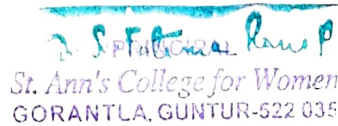 PRINCIPAL
St. Ann's College for Women
GORANTLA, GUNTUR-522 035